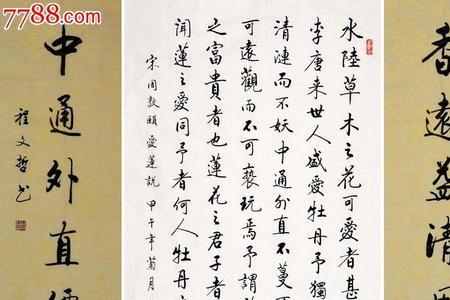 7788.com
香遠益清
水陸草木之花可愛者甚
李唐来世人盛愛牡丹予獨
清漣而不妖中通外直不蔓
可遠觀而不可褻玩焉予謂
之富貴者也蓮花之君子者
聞蓮之愛同予者何人牡丹
宋周敦頤愛蓮説 甲午年菊月
中通外直
程文哲书